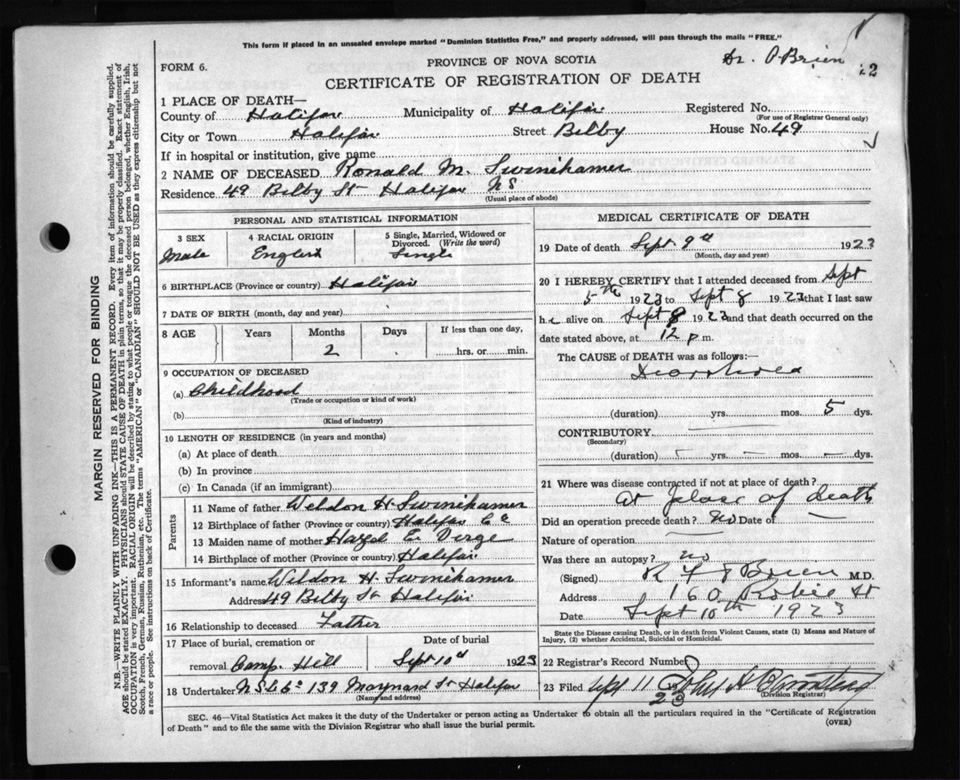 This form if placed in an unsealed envelope marked "Dominion Statistics Free," and properly addressed, will pass through the mails "FREE."
Dr. O'Brien
FORM 6.
PROVINCE OF NOVA SCOTIA
CERTIFICATE OF REGISTRATION OF DEATH
1 PLACE OF DEATH—
County of Halifax Municipality of Halifax Registered No.
(For use of Registrar General only)
City or Town Halifax Street Bilby House No. 49
If in hospital or institution, give name
2 NAME OF DECEASED Ronald M. Swinehamer
Residence 49 Bilby St Halifax NS
(Usual place of abode)
PERSONAL AND STATISTICAL INFORMATION
3 SEX 4 RACIAL ORIGIN 5 Single, Married, Widowed or Divorced. (Write the word)
Male English Single
6 BIRTHPLACE (Province or country) Halifax
7 DATE OF BIRTH (month, day and year)
8 AGE Years Months Days If less than one day,
2 hrs. or min.
9 OCCUPATION OF DECEASED
(a) Childhood
(Trade or occupation or kind of work)
(b)
(Kind of industry)
10 LENGTH OF RESIDENCE (in years and months)
(a) At place of death
(b) In province
(c) In Canada (if an immigrant)
Parents
11 Name of father Weldon H. Swinehamer
12 Birthplace of father (Province or country) Halifax Co
13 Maiden name of mother Hazel E. Verge
14 Birthplace of mother (Province or country) Halifax
15 Informant's name Weldon H. Swinehamer
Address 49 Bilby St Halifax
16 Relationship to deceased Father
17 Place of burial, cremation or Date of burial
removal Camp Hill Sept 10th 1923
18 Undertaker 139 Maynard St Halifax
(Name and address)
MEDICAL CERTIFICATE OF DEATH
19 Date of death Sept 9th 1923
(Month, day and year)
20 I HEREBY CERTIFY that I attended deceased from Sept
5th 1923 to Sept 8 1923 that I last saw
h alive on Sept 8 1923 and that death occurred on the
date stated above, at 12 p m.
The CAUSE OF DEATH was as follows:—
Diarrhoea
(duration) yrs. mos. 5 dys.
CONTRIBUTORY
(Secondary)
(duration) — yrs. — mos. — dys.
21 Where was disease contracted if not at place of death?
At place of death
Did an operation precede death? No Date of
Nature of operation
Was there an autopsy? no
(Signed) O'Brien M.D.
Address 160 Robie St
Date Sept 10th 1923
State the Disease causing Death, or in death from Violent Causes, state (1) Means and Nature of Injury, (2) whether Accidental, Suicidal or Homicidal.
22 Registrar's Record Number
23 Filed Sept 11 23 John H
(Division Registrar)
SEC. 46—Vital Statistics Act makes it the duty of the Undertaker or person acting as Undertaker to obtain all the particulars required in the "Certificate of Registration
of Death" and to file the same with the Division Registrar who shall issue the burial permit.
(OVER)
MARGIN RESERVED FOR BINDING
N.B.—WRITE PLAINLY WITH UNFADING INK—THIS IS A PERMANENT RECORD. Every item of information should be carefully supplied.
AGE should be stated EXACTLY. PHYSICIANS should STATE CAUSE OF DEATH in plain terms, so that it may be properly classified. Exact statement of
OCCUPATION is very important. RACIAL ORIGIN will be described by stating to what people or tongue the deceased person belonged, whether English, Irish,
Scotch, French, German, Russian, Ruthenian, etc. The terms "AMERICAN" or "CANADIAN" SHOULD NOT BE USED as they express citizenship but not
a race or people. See instructions on back of Certificate.